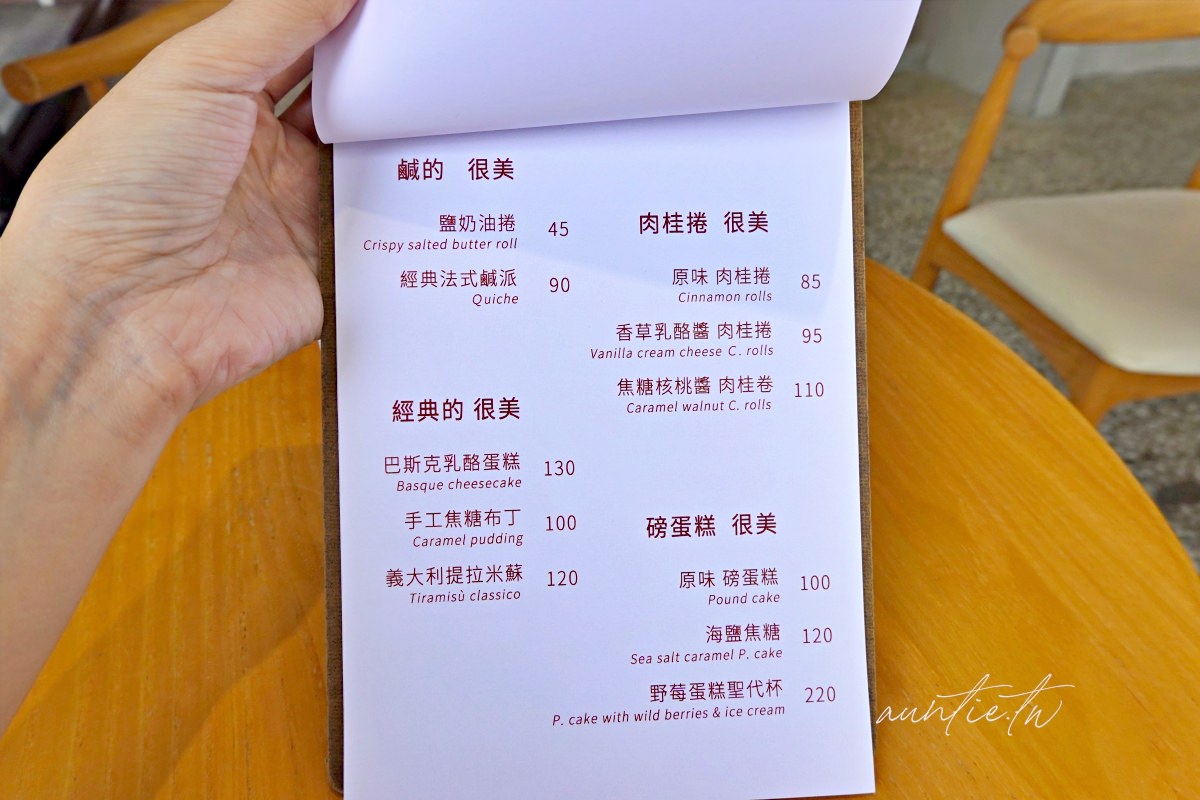 鹹的 很美
鹽奶油捲 45
Crispy salted butter roll
經典法式鹹派 90
Quiche
經典的 很美
巴斯克乳酪蛋糕 130
Basque cheesecake
手工焦糖布丁 100
Caramel pudding
義大利提拉米蘇 120
Tiramisù classico
肉桂捲 很美
原味 肉桂捲 85
Cinnamon rolls
香草乳酪醬 肉桂捲 95
Vanilla cream cheese C. rolls
焦糖核桃醬 肉桂卷 110
Caramel walnut C. rolls
磅蛋糕 很美
原味 磅蛋糕 100
Pound cake
海鹽焦糖 120
Sea salt caramel P. cake
野莓蛋糕聖代杯 220
P. cake with wild berries & ice cream
auntie.tw